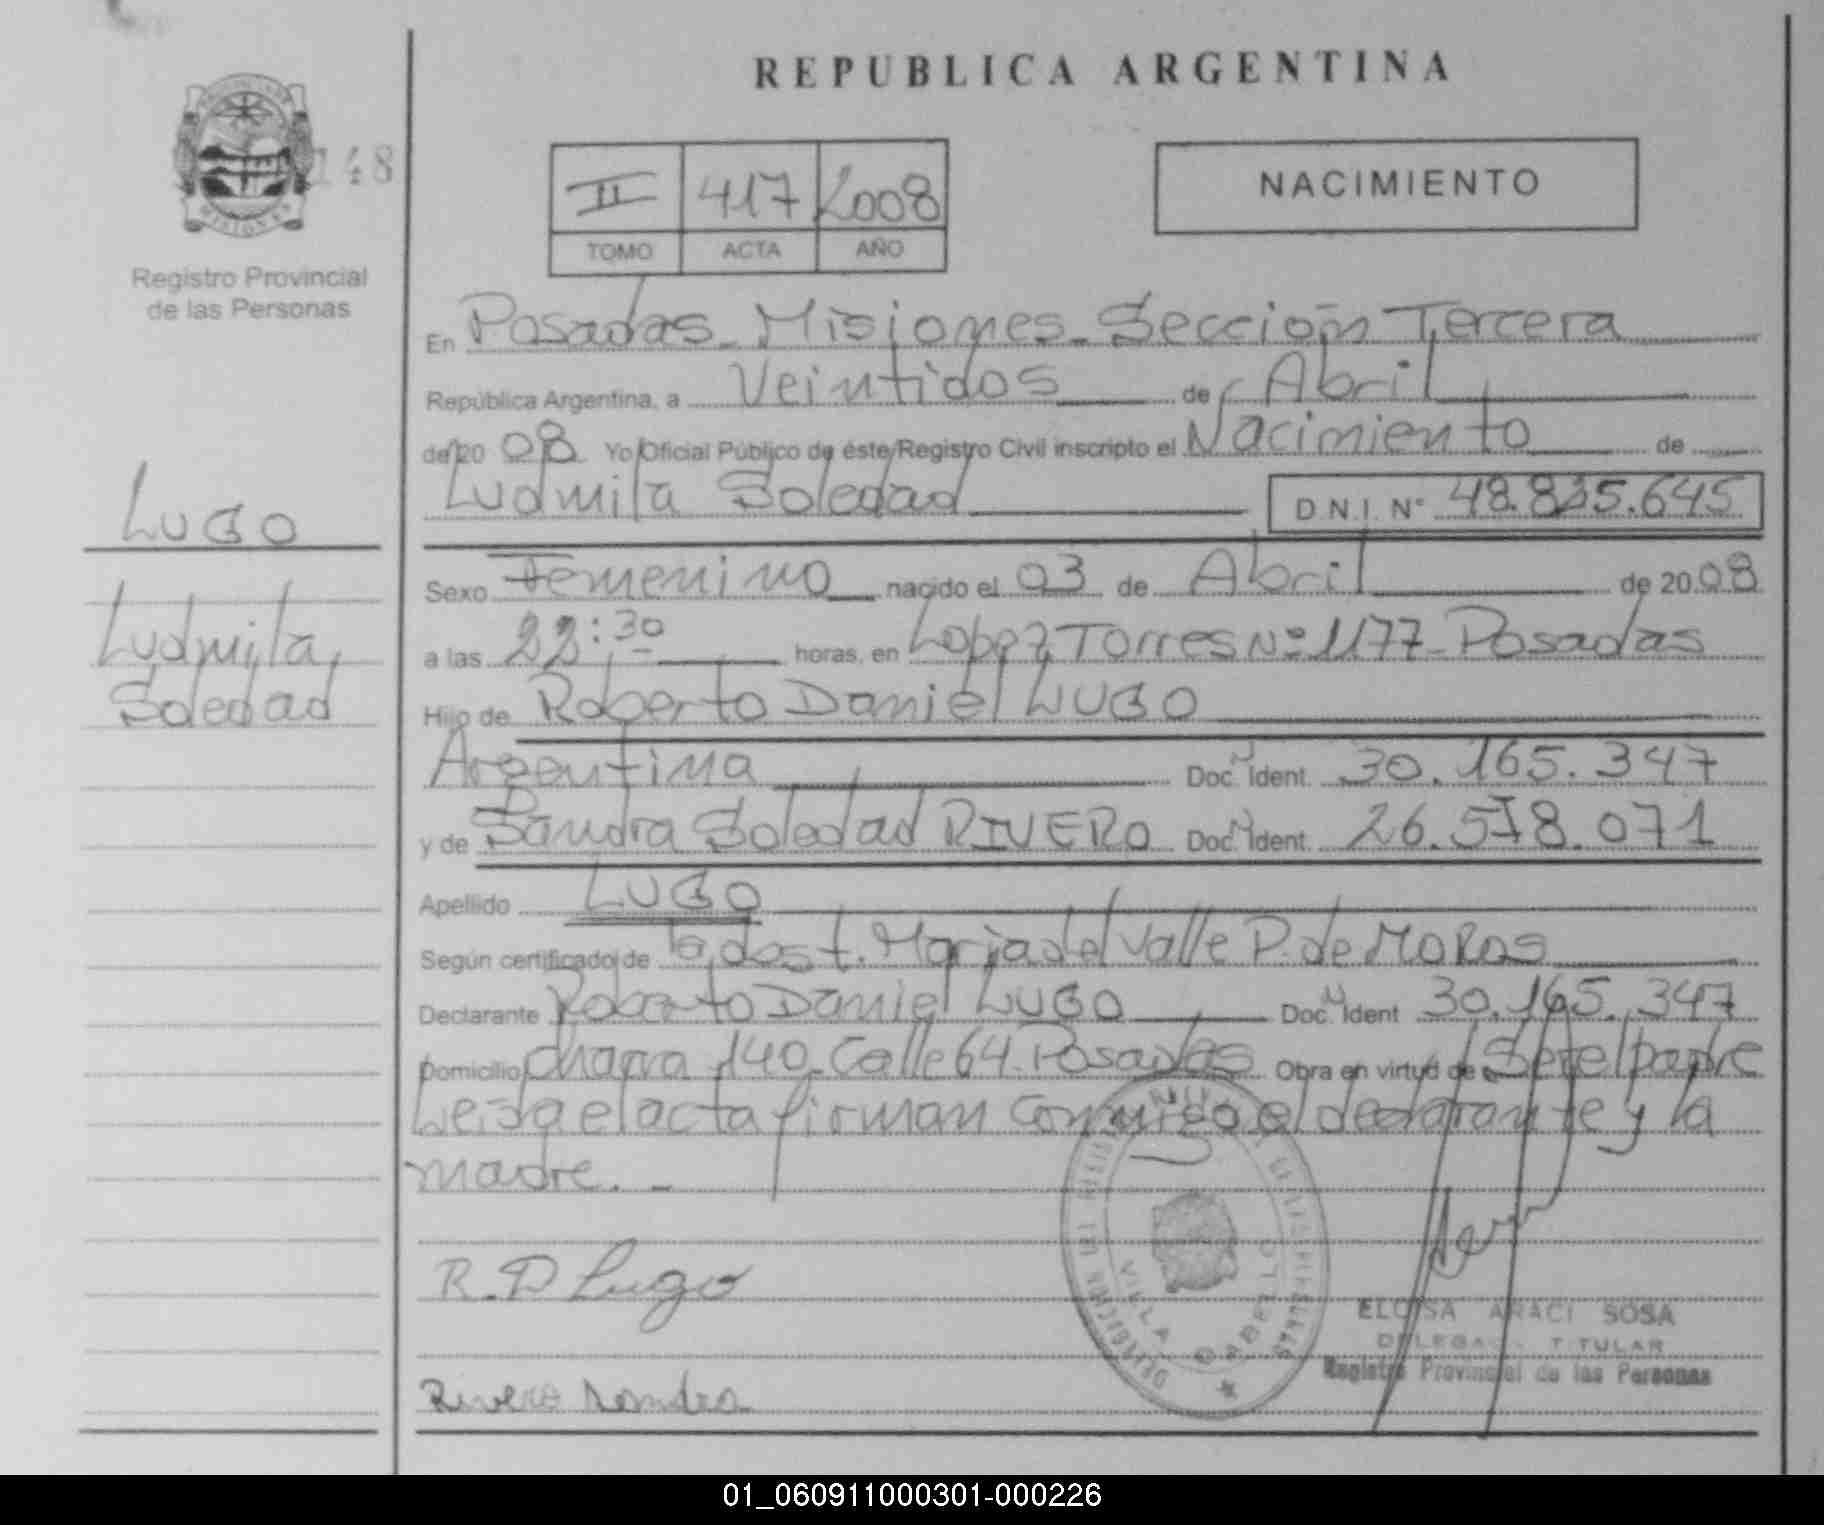 REPUBLICA ARGENTINA
148
MISIONES
Registro Provincial
de las Personas
II 417 2008
TOMO ACTA AÑO
NACIMIENTO
En Posadas - Misiones - Sección Tercera
República Argentina, a Veintidos de Abril
de 20 08 Yo Oficial Público de éste Registro Civil inscripto el Nacimiento de
Ludmila Soledad D.N.I. Nº 48.835.645
LUGO
Ludmila
Soledad
Sexo Femenino nacido el 03 de Abril de 20 08
a las 22:30 horas, en Lopez Torres Nº 1177 - Posadas
Hijo de Roberto Daniel LUGO
Argentina Doc. Ident. 30.165.347
y de Sandra Soledad RIVERO Doc. Ident. 26.578.071
Apellido LUGO
Según certificado de Maria del Valle P. de MOROS
Declarante Roberto Daniel LUGO Doc. Ident 30.165.347
Domicilio chacra 140 - Calle 64 - Posadas Obra en virtud de Ser el padre
Leida el acta firman conmigo el declarante y la
madre. -
R. D Lugo
VILLA CABELLO
ELOISA ARACI SOSA
TITULAR
Registro Provincial de las Personas
Rivero Sandra
01_060911000301-000226